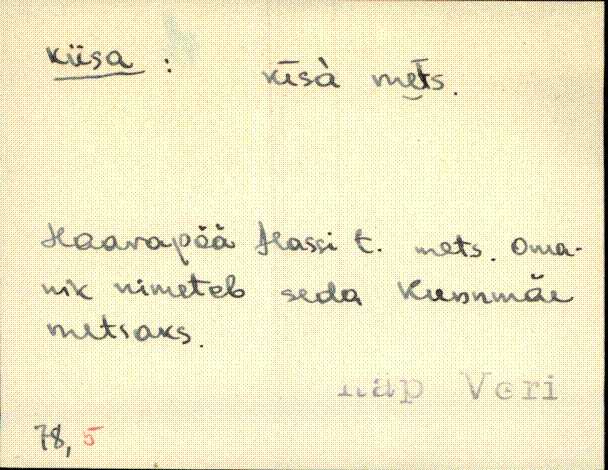 Kiisa : kīsà mets.
Haavapää Hassi t. mets. Oma-
nik nimeteb seda Kunnmäe
metsaks.
Räp Veri
78, 5